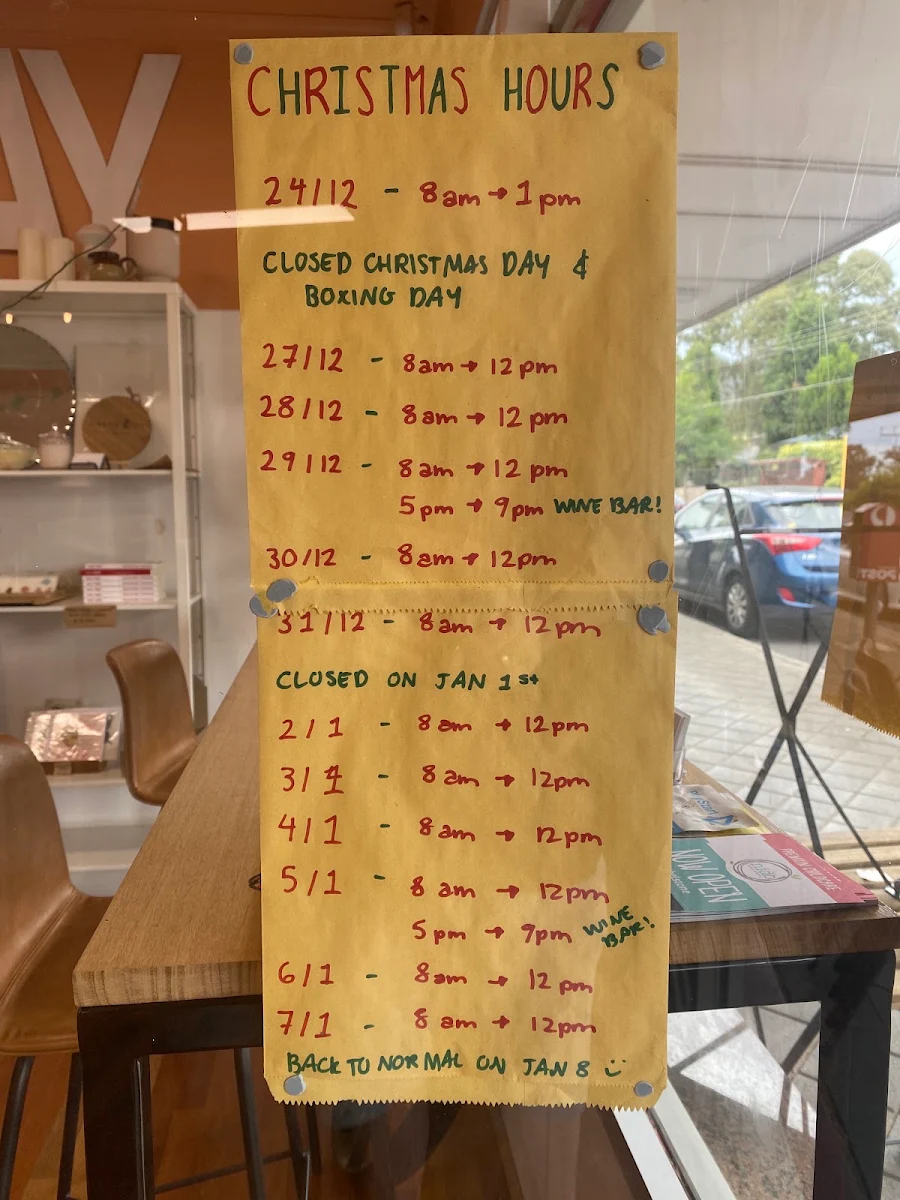 AY
CHRISTMAS HOURS
24/12 - 8am → 1pm
CLOSED CHRISTMAS DAY &
BOXING DAY
27/12 - 8am → 12pm
28/12 - 8am → 12pm
29/12 - 8am → 12pm
5pm → 9pm WINE BAR!
30/12 - 8am → 12pm
31/12 - 8am → 12pm
CLOSED ON JAN 1st
2/1 - 8am → 12pm
3/1 - 8am → 12pm
4/1 - 8am → 12pm
5/1 - 8am → 12pm
5pm → 9pm WINE
BAR!
6/1 - 8am → 12pm
7/1 - 8am → 12pm
BACK TO NORMAL ON JAN 8 :)
POST
NOW OPEN